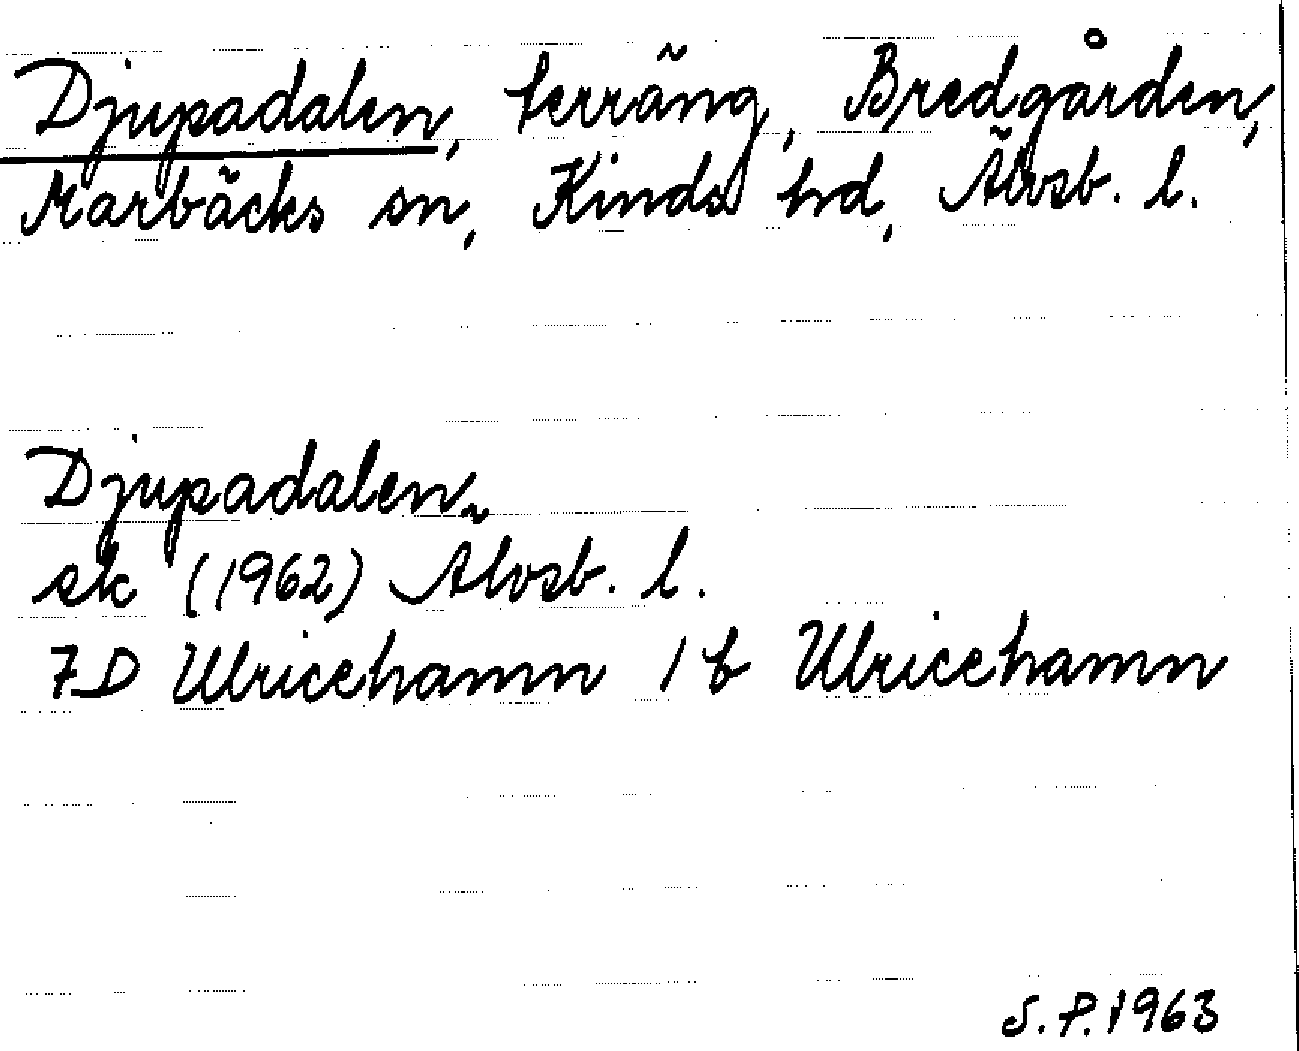 Djupadalen, terräng, Bredgården,
Marbäcks sn, Kinds hd, Älvsb. l.
Djupadalen
sk (1962) Älvsb. l.
7D Ulricehamn 1 b Ulricehamn
S.P. 1963